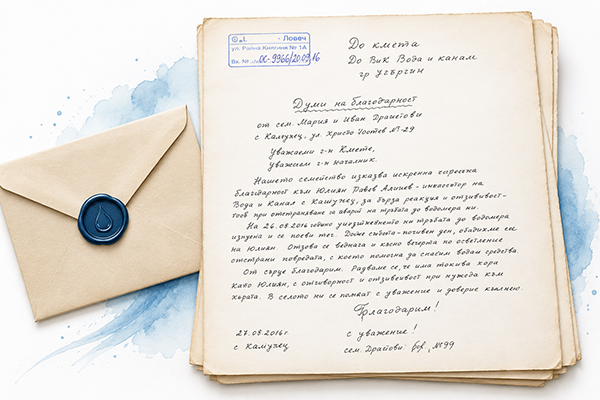 Ловеч
ул. Райна Княгиня № 1А
Вх. № ОС-9966/20.09.16
До кмета
До ВиК Вода и канал
гр Угърчин
Думи на благодарност
от сем. Мария и Иван
с Калучец, ул. Христо №-29
Уважаеми г-н Кмете,
уважаеми г-н началник.
Нашето семейство изказва искрена сърдечна
благодарност към Юлиян инкасатор на
Вода и Канал с за бърза реакция и отзивчивост-
при отстраняване аварии на тръбата до водомера ни.
На 26.08.2016 годино тръбата до водомера
изпусна и се появи теч. събота-почивен ден, обадихме се
на Юлиян. Отзова се веднага и късно вечерта на осветление
отстрани повредата, с което помогна да спасим водни средства.
От сърце благодарим. Радваме се, че има такива хора
като Юлиян, с отговорност и отзивчивост при нужда към
хората. В селото ни се ползват с уважение и доверие
Благодарим!
27.08.2016г.
с уважение!
с Калучец
сем.